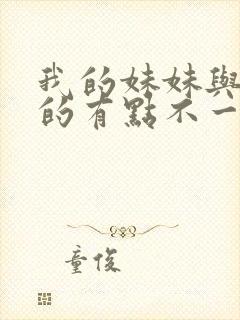 我的妹妹與
的有點不一
童俊